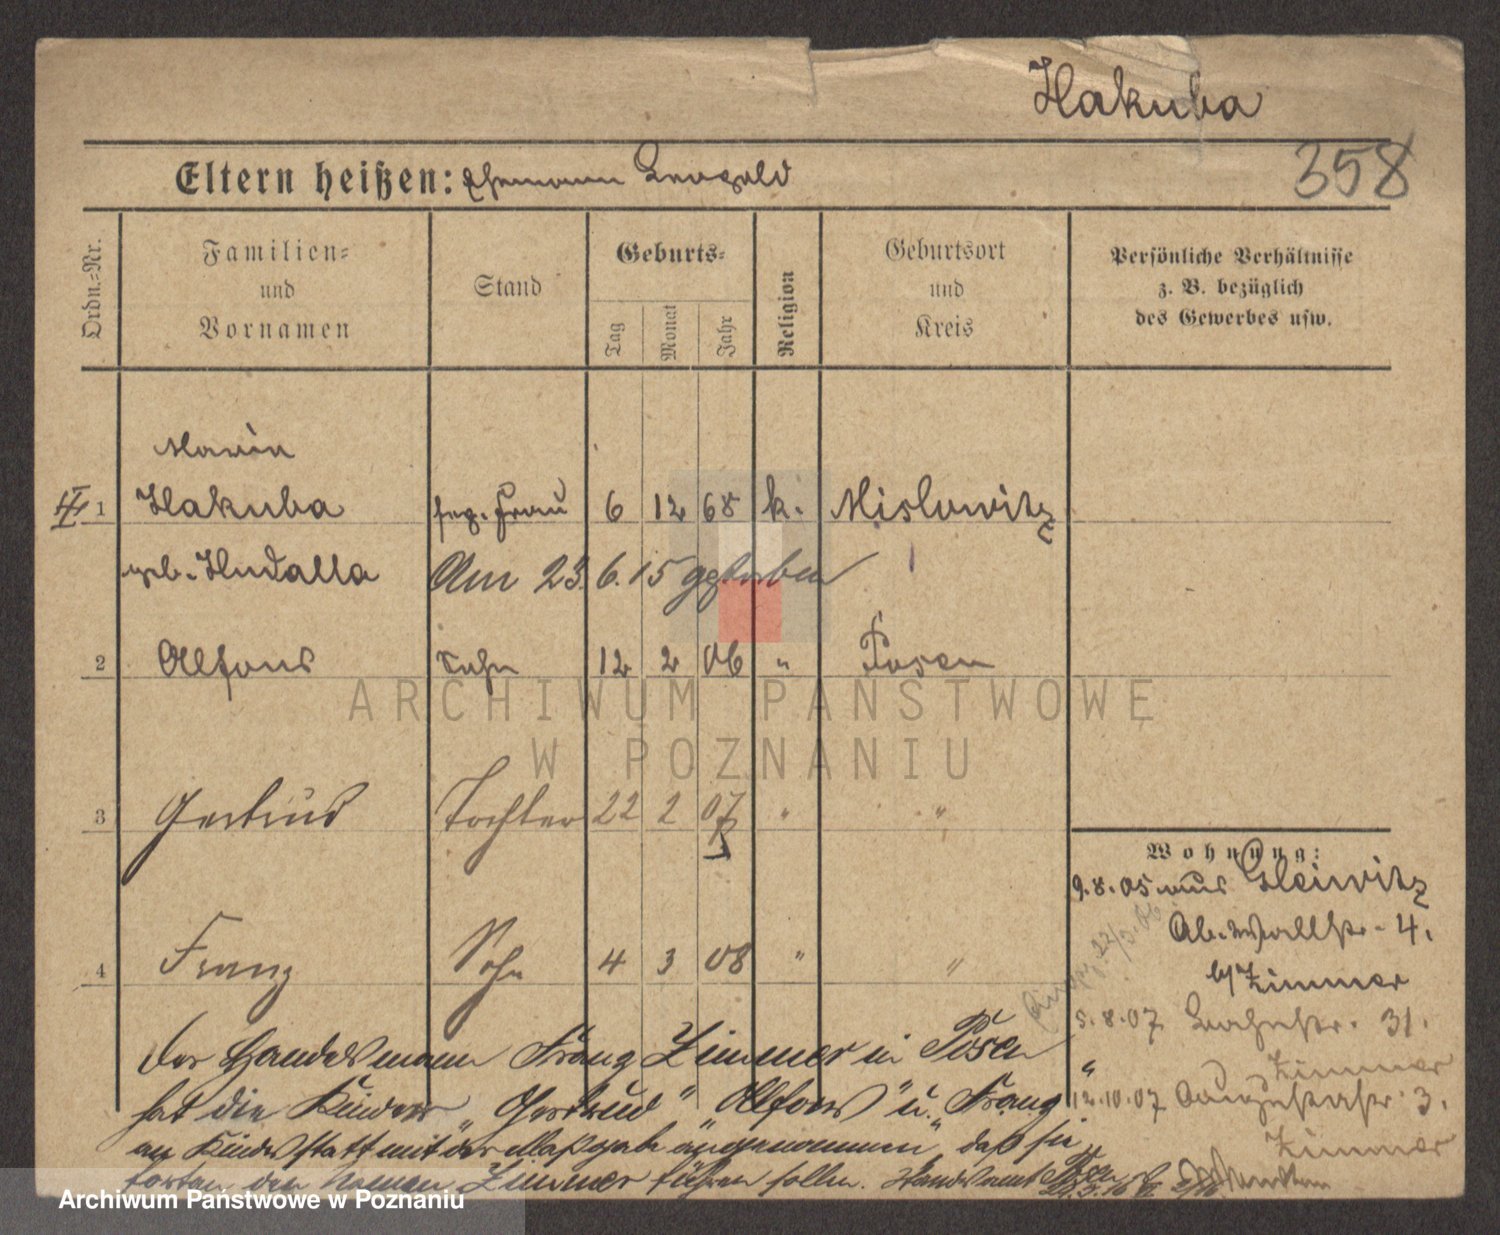 Hakuba
358
Eltern heißen: Ehemann Leopold
Ordn.-Nr.
Familien-
und
Vornamen
Stand
Geburts-
Tag
Monat
Jahr
Religion
Geburtsort
und
Kreis
Persönliche Verhältnisse
z. B. bezüglich
des Gewerbes usw.
Maria
1 Hakuba Frau 6 12 68 k. Mislowitz
geb. Hudalla Am 23.6.15 gestorben
2 Alfons Sohn 12 2 06 " Posen
ARCHIWUM PAŃSTWOWE
W POZNANIU
3 Gertrud Tochter 22 2 07 " "
4 Franz Sohn 4 3 08 " "
Wohnung:
9.8.05 aus Gleiwitz
Wallstr. 4.
b/ Zimmer
5.8.07 31.
" Zimmer
12.10.07 Augustastr. 3.
Zimmer
Der Handelsmann Franz Zimmer in Posen
hat die Kinder "Gertrud" "Alfons" u. "Franz"
an Kindesstatt mit der Maßgabe angenommen, daß sie
fortan den Namen Zimmer führen sollen. Standesamt Posen
Archiwum Państwowe w Poznaniu